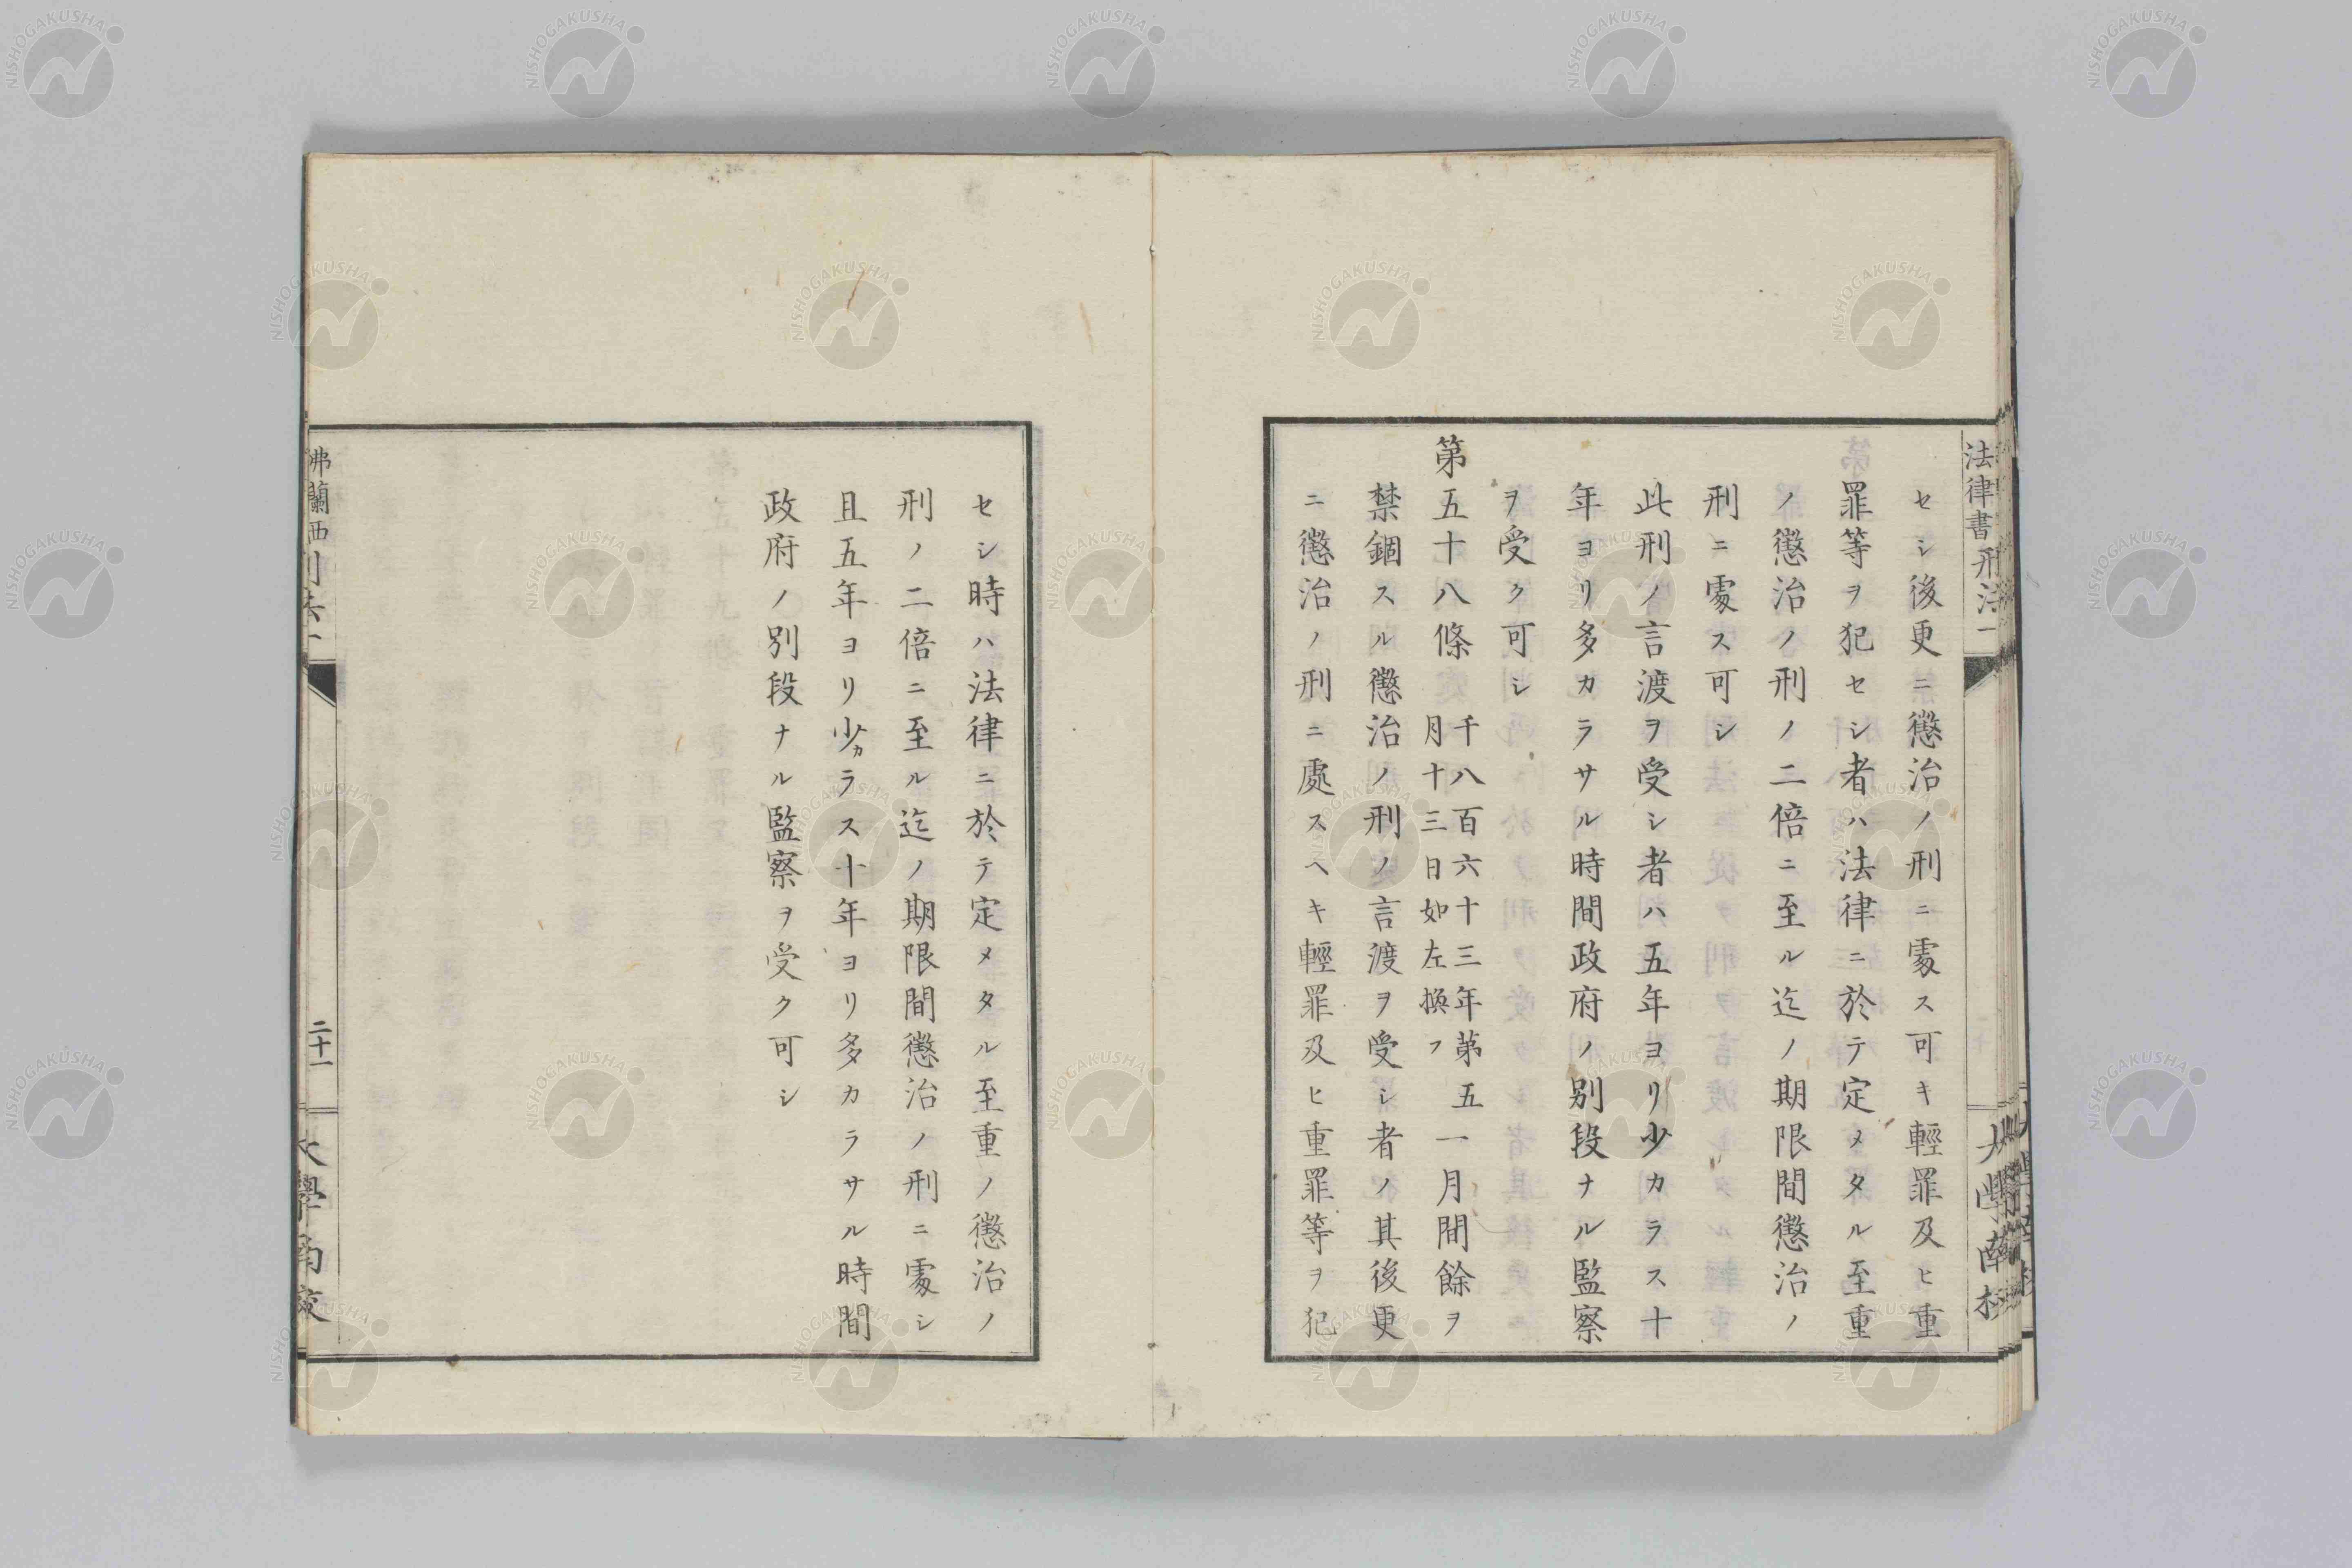 法律書刑法一
大學南校
セシ後更ニ懲治ノ刑ニ處ス可キ輕罪及ヒ重
罪等ヲ犯セシ者ハ法律ニ於テ定メタル至重
ノ懲治ノ刑ノ二倍ニ至ル迄ノ期限間懲治ノ
刑ニ處ス可シ
此刑ノ言渡ヲ受シ者ハ五年ヨリ少カラス十
年ヨリ多カラサル時間政府ノ別段ナル監察
ヲ受ク可シ
第五十八條 千八百六十三年第五
月十三日如左換フ 一月間餘ヲ
禁錮スル懲治ノ刑ノ言渡ヲ受シ者ノ其後更
ニ懲治ノ刑ニ處スヘキ輕罪及ヒ重罪等ヲ犯
セシ時ハ法律ニ於テ定メタル至重ノ懲治ノ
刑ノ二倍ニ至ル迄ノ期限間懲治ノ刑ニ處シ
且五年ヨリ少カラス十年ヨリ多カラサル時間
政府ノ別段ナル監察ヲ受ク可シ
佛蘭西刑法一
二十一
大學南校
NISHOGAKUSHA